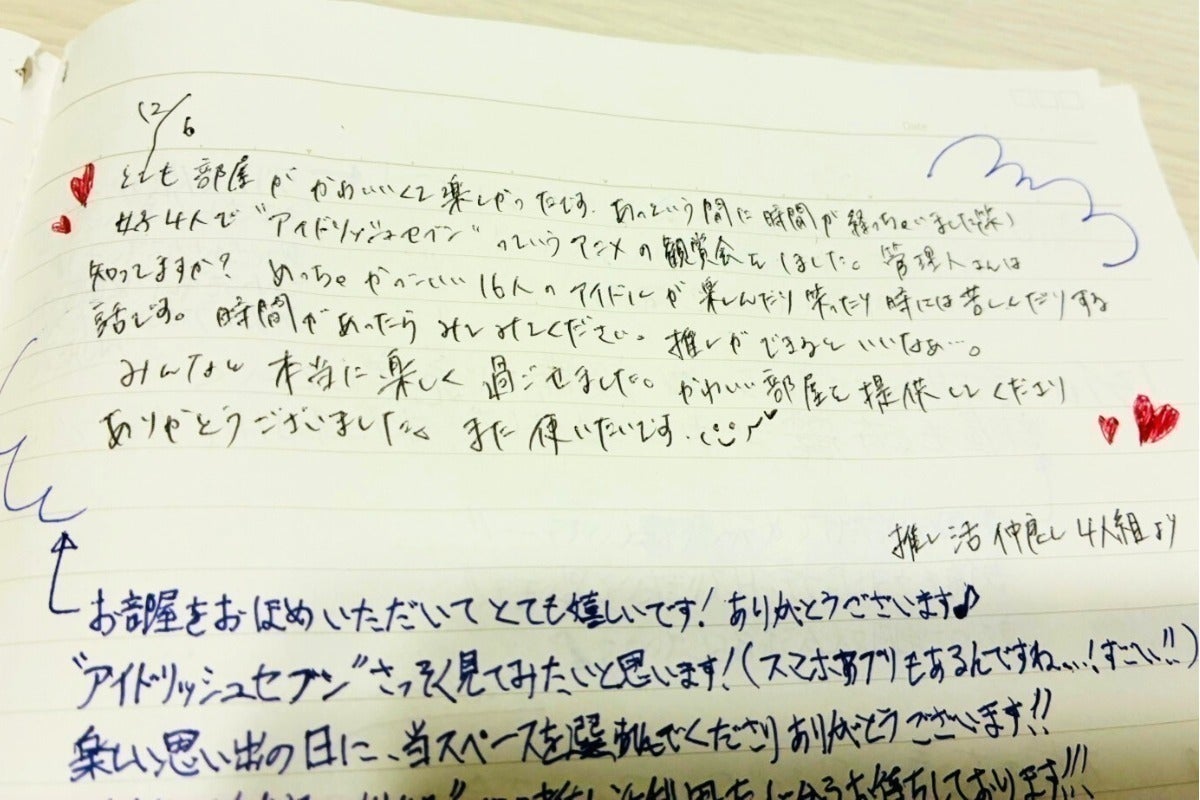 12/6
とても部屋がかわいいくて楽しかったです。あっという間に時間が経っちゃいました(笑)
女子4人で"アイドリッシュセブン"っていうアニメの観賞会をしました。管理人さんは
知ってますか？めっちゃかっこいい16人のアイドルが楽しんだり笑ったり時には苦しんだりする
話です。時間があったらみてみてください。推しができるといいなぁ…。
みんなで本当に楽しく過ごせました。かわいい部屋を提供してくださり
ありがとうございました。また使いたいです。
推し活仲良し4人組より
お部屋をおほめいただいてとても嬉しいです！ありがとうございます♪
"アイドリッシュセブン"さっそく見てみたいと思います！(スマホアプリもあるんですね...！すごい!!)
楽しい思い出の日に、当スペースを選んでくださりありがとうございます!!
お待ちしております!!!